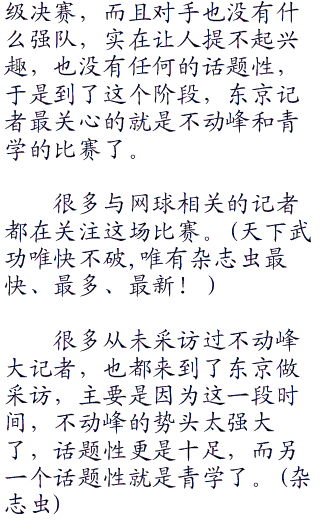 级决赛，而且对手也没有什
么强队，实在让人提不起兴
趣，也没有任何的话题性，
于是到了这个阶段，东京记
者最关心的就是不动峰和青
学的比赛了。
很多与网球相关的记者
都在关注这场比赛。(天下武
功唯快不破,唯有杂志虫最
快、最多、最新！ )
很多从未采访过不动峰
大记者，也都来到了东京做
采访，主要是因为这一段时
间，不动峰的势头太强大
了，话题性更是十足，而另
一个话题性就是青学了。(杂
志虫)